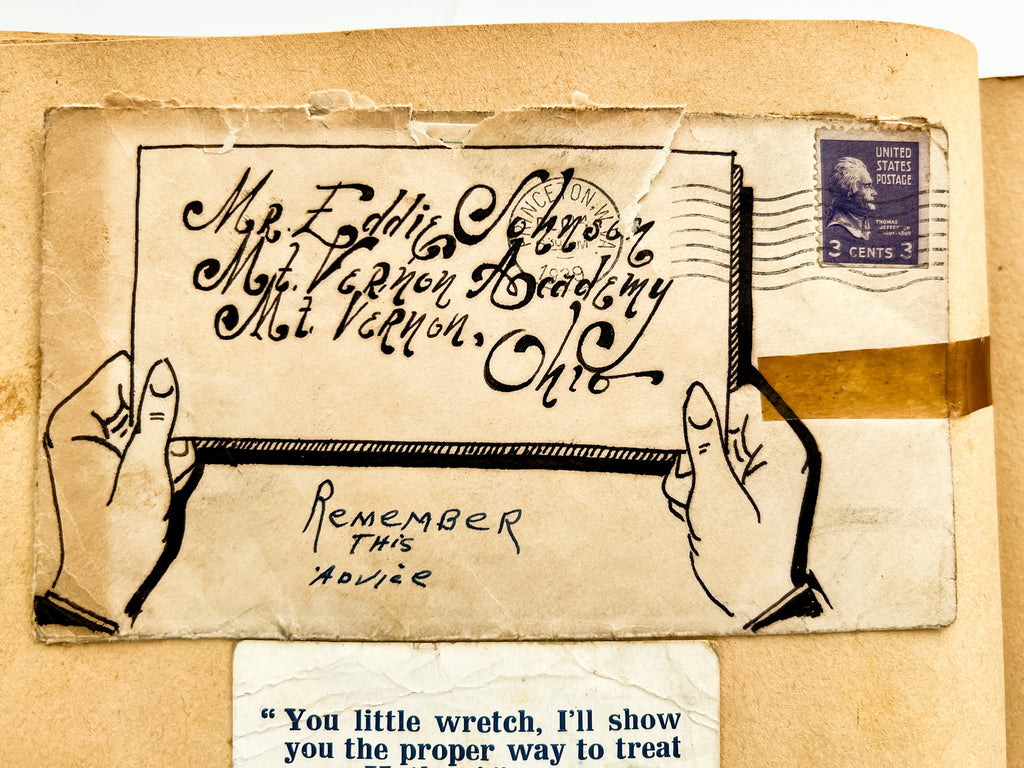 Mr. Eddie Johnson
Mt. Vernon Academy
Mt. Vernon,
Ohio
PRINCETON, W.VA.
1939
UNITED
STATES
POSTAGE
THOMAS
JEFFERSON
1801-1809
3 CENTS 3
REMEMBER
THIS
ADVICE
“You little wretch, I'll show
you the proper way to treat